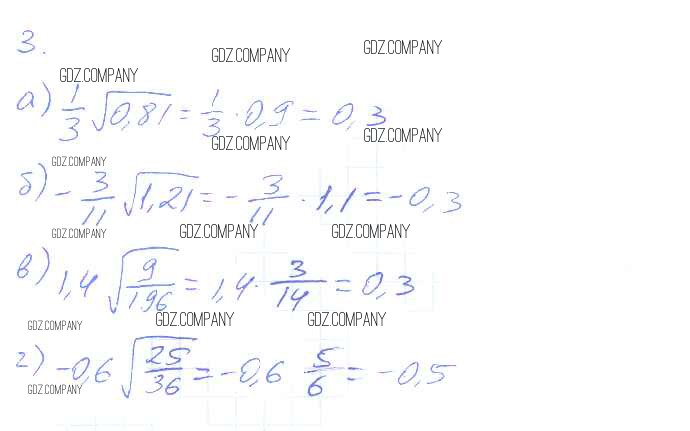 3.
GDZ.COMPANY GDZ.COMPANY
GDZ.COMPANY
а) 1/3 √0,81 = 1/3 · 0,9 = 0,3
GDZ.COMPANY GDZ.COMPANY
GDZ.COMPANY
б) - 3/11 √1,21 = - 3/11 · 1,1 = -0,3
GDZ.COMPANY GDZ.COMPANY GDZ.COMPANY
в) 1,4 √9/196 = 1,4 · 3/14 = 0,3
GDZ.COMPANY GDZ.COMPANY GDZ.COMPANY
г) -0,6 √25/36 = -0,6 5/6 = -0,5
GDZ.COMPANY